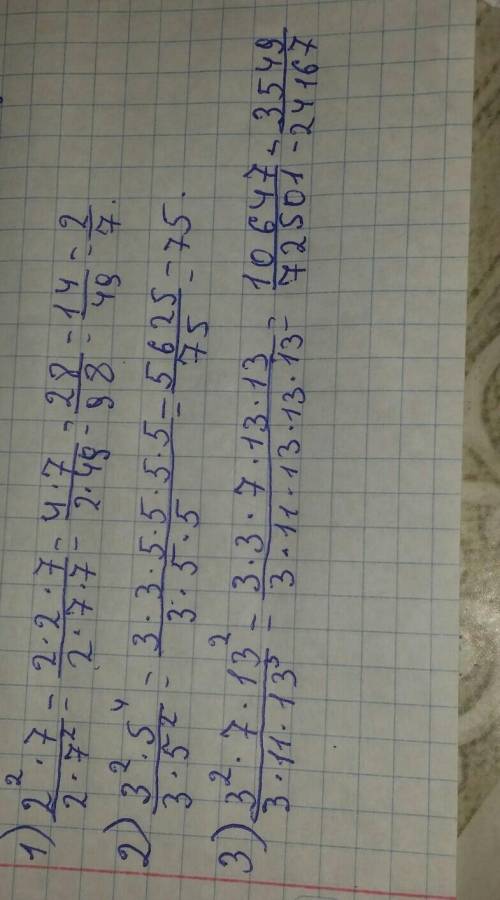 1) 2²·7/2·7² = 2·2·7/2·7·7 = 4·7/2·49 = 28/98 = 14/49 = 2/7.
2) 3²·5⁴/3·5² = 3·3·5·5·5·5/3·5·5 = 5625/75 = 75.
3) 3²·7·13²/3·11·13³ = 3·3·7·13·13/3·11·13·13·13 = 10647/72501 = 3549/24167